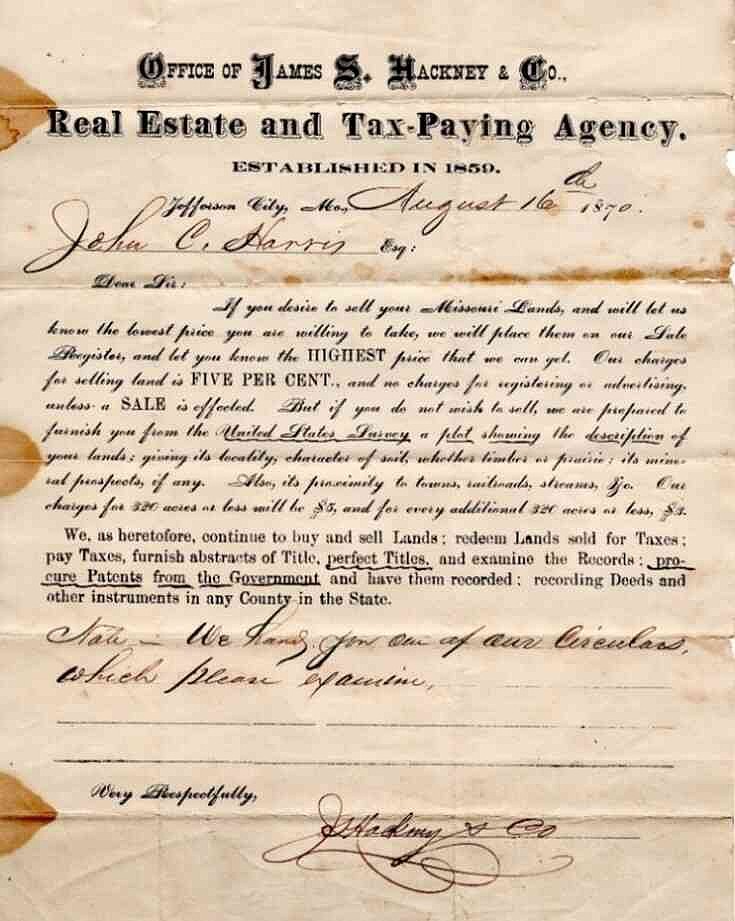 OFFICE OF JAMES S. HACKNEY & CO.,
Real Estate and Tax-Paying Agency.
ESTABLISHED IN 1859.
Jefferson City, Mo., August 16th 1870.
John C. Harris Esq:
Dear Sir:
If you desire to sell your Missouri Lands, and will let us
know the lowest price you are willing to take, we will place them on our Sale
Register, and let you know the HIGHEST price that we can get. Our charges
for selling land is FIVE PER CENT., and no charges for registering or advertising,
unless a SALE is effected. But if you do not wish to sell, we are prepared to
furnish you from the United States Survey a plot showing the description of
your lands; giving its locality, character of soil, whether timber or prairie; its mine-
ral prospects, if any. Also, its proximity to towns, railroads, streams, &c. Our
charges for 320 acres or less will be $5, and for every additional 320 acres or less, $3.
We, as heretofore, continue to buy and sell Lands; redeem Lands sold for Taxes;
pay Taxes, furnish abstracts of Title, perfect Titles, and examine the Records; pro-
cure Patents from the Government and have them recorded; recording Deeds and
other instruments in any County in the State.
Note — We hand you one of our Circulars,
which please examine,
Very Respectfully,
JS Hackney & Co